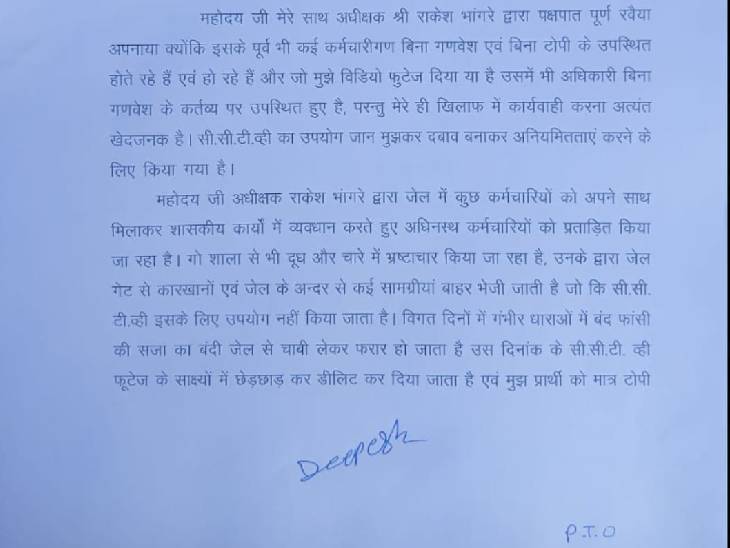 महोदय जी मेरे साथ अधीक्षक श्री राकेश भांगरे द्वारा पक्षपात पूर्ण रवैया
अपनाया क्योंकि इसके पूर्व भी कई कर्मचारीगण बिना गणवेश एवं बिना टोपी के उपस्थित
होते रहे हैं एवं हो रहे हैं और जो मुझे विडियो फुटेज दिया या है उसमें भी अधिकारी बिना
गणवेश के कर्तव्य पर उपस्थित हुए है, परन्तु मेरे ही खिलाफ में कार्यवाही करना अत्यंत
खेदजनक है। सी.सी.टी.व्ही का उपयोग जान मुझकर दबाव बनाकर अनियमितताएं करने के
लिए किया गया है।
महोदय जी अधीक्षक राकेश भांगरे द्वारा जेल में कुछ कर्मचारियों को अपने साथ
मिलाकर शासकीय कार्यों में व्यवधान करते हुए अधिनस्थ कर्मचारियों को प्रताड़ित किया
जा रहा है। गो शाला से भी दूध और चारे में भ्रष्टाचार किया जा रहा है, उनके द्वारा जेल
गेट से कारखानों एवं जेल के अन्दर से कई सामग्रीयां बाहर भेजी जाती है जो कि सी.सी.
टी.व्ही इसके लिए उपयोग नहीं किया जाता है। विगत दिनों में गंभीर धाराओं में बंद फांसी
की सजा का बंदी जेल से चाबी लेकर फरार हो जाता है उस दिनांक के सी.सी.टी. व्ही
फूटेज के साक्ष्यों में छेड़छाड़ कर डीलिट कर दिया जाता है एवं मुझ प्रार्थी को मात्र टोपी
Deepesh
P.T.O